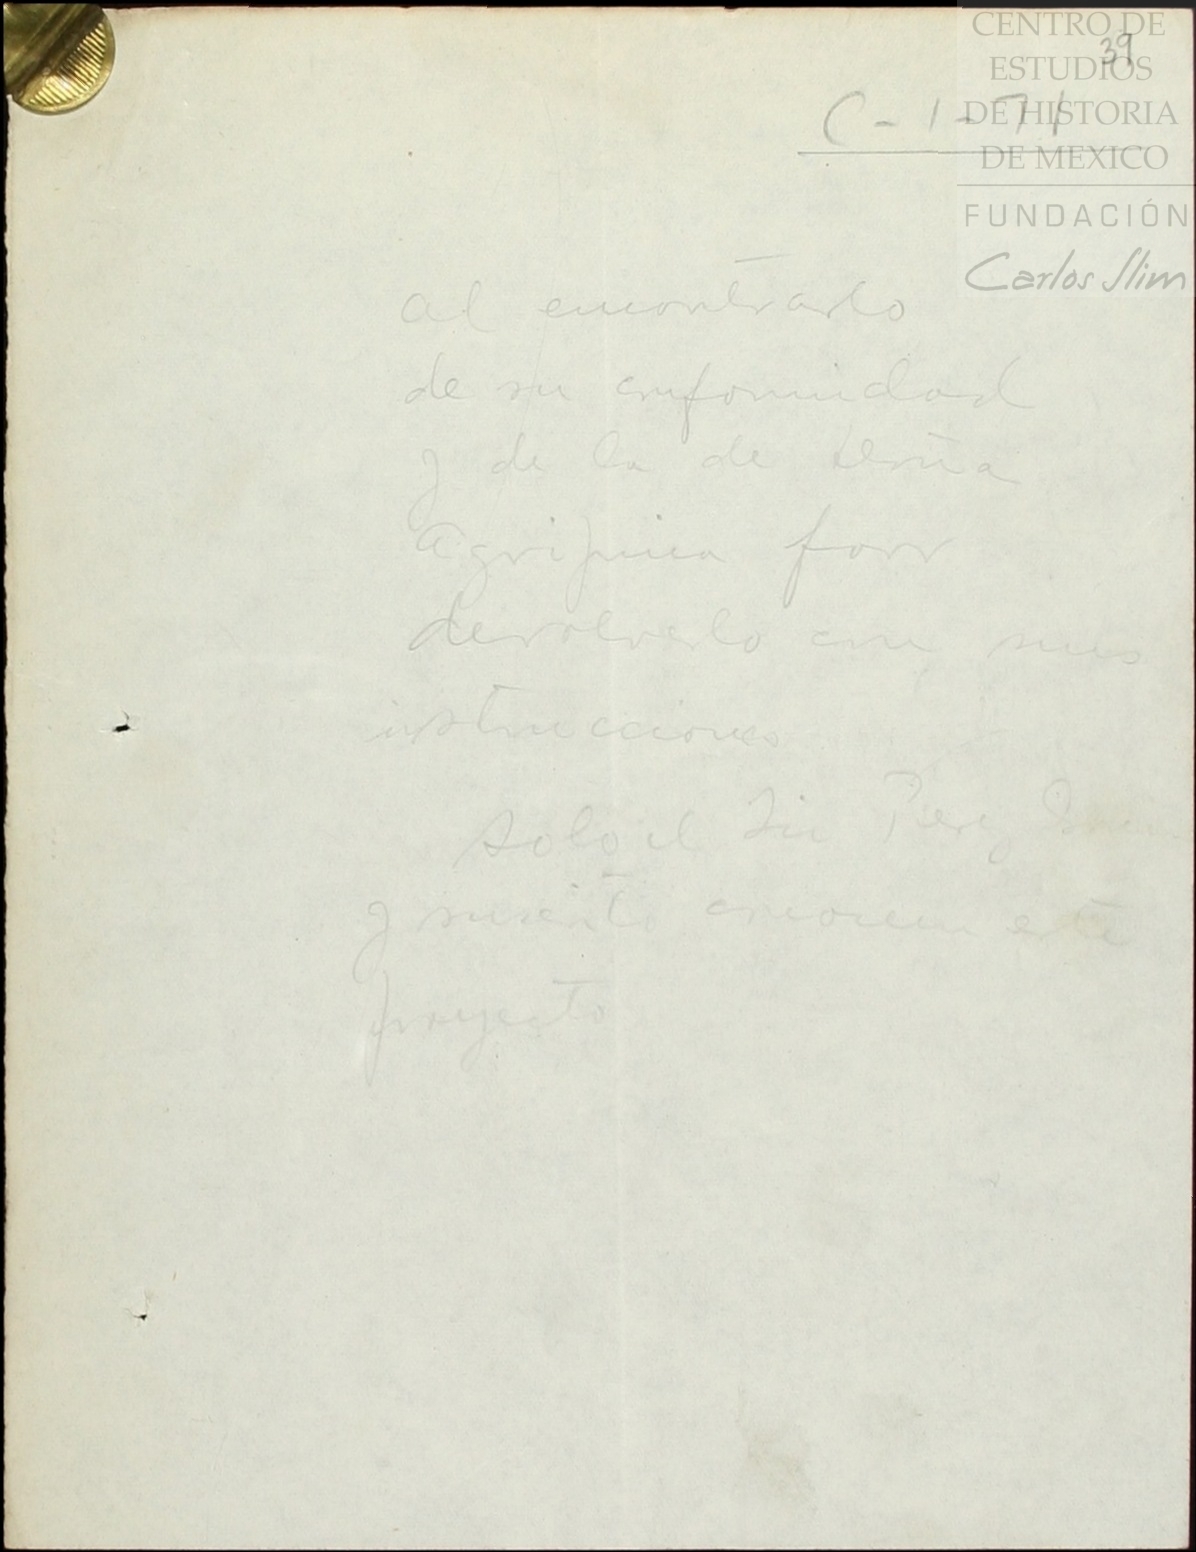 CENTRO DE
ESTUDIOS
DE HISTORIA
DE MEXICO
FUNDACIÓN
Carlos Slim
39
C-1-71
al encontrarlo
de su conformidad
y de la de doña
Agripina favor
devolverlo con sus
instrucciones
Solo el Lic Perez
y conocen este
proyecto